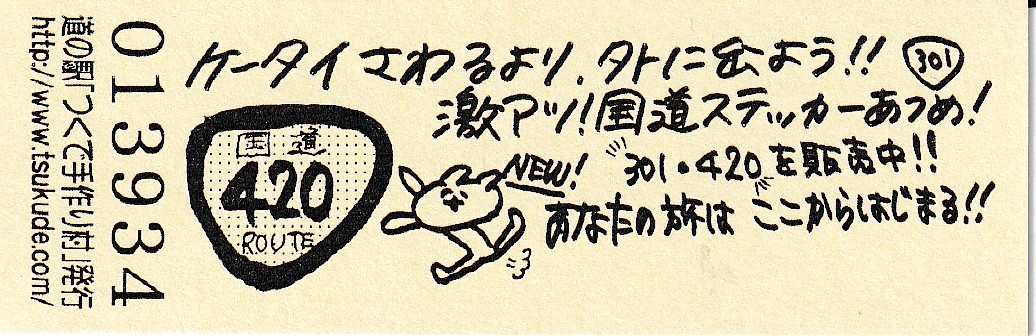 ケータイさわるより、外に出よう!! 301
激アツ!国道ステッカーあつめ!
NEW! "301・420"を販売中!!
あなたの旅は ここからはじまる!!
国道
420
ROUTE
013934
道の駅「つくで手作り村」発行
http://www.tsukude.com/